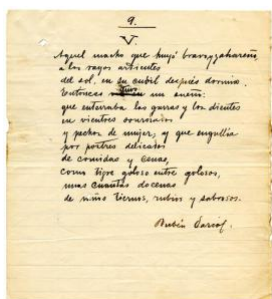 9.
V.
Aquel macho que huyó bravo y zahareño
a los rayos ardientes
del sol, en su cubil después dormía.
Entonces tuvo un sueño:
que enterraba las garras y los dientes
en vientres sonrosados
y pechos de mujer; y que engullía
por postres delicados
de comidas y cenas,
como tigre goloso entre golosos,
unas cuantas docenas
de niños tiernos, rubios y sabrosos.
Rubén Darío